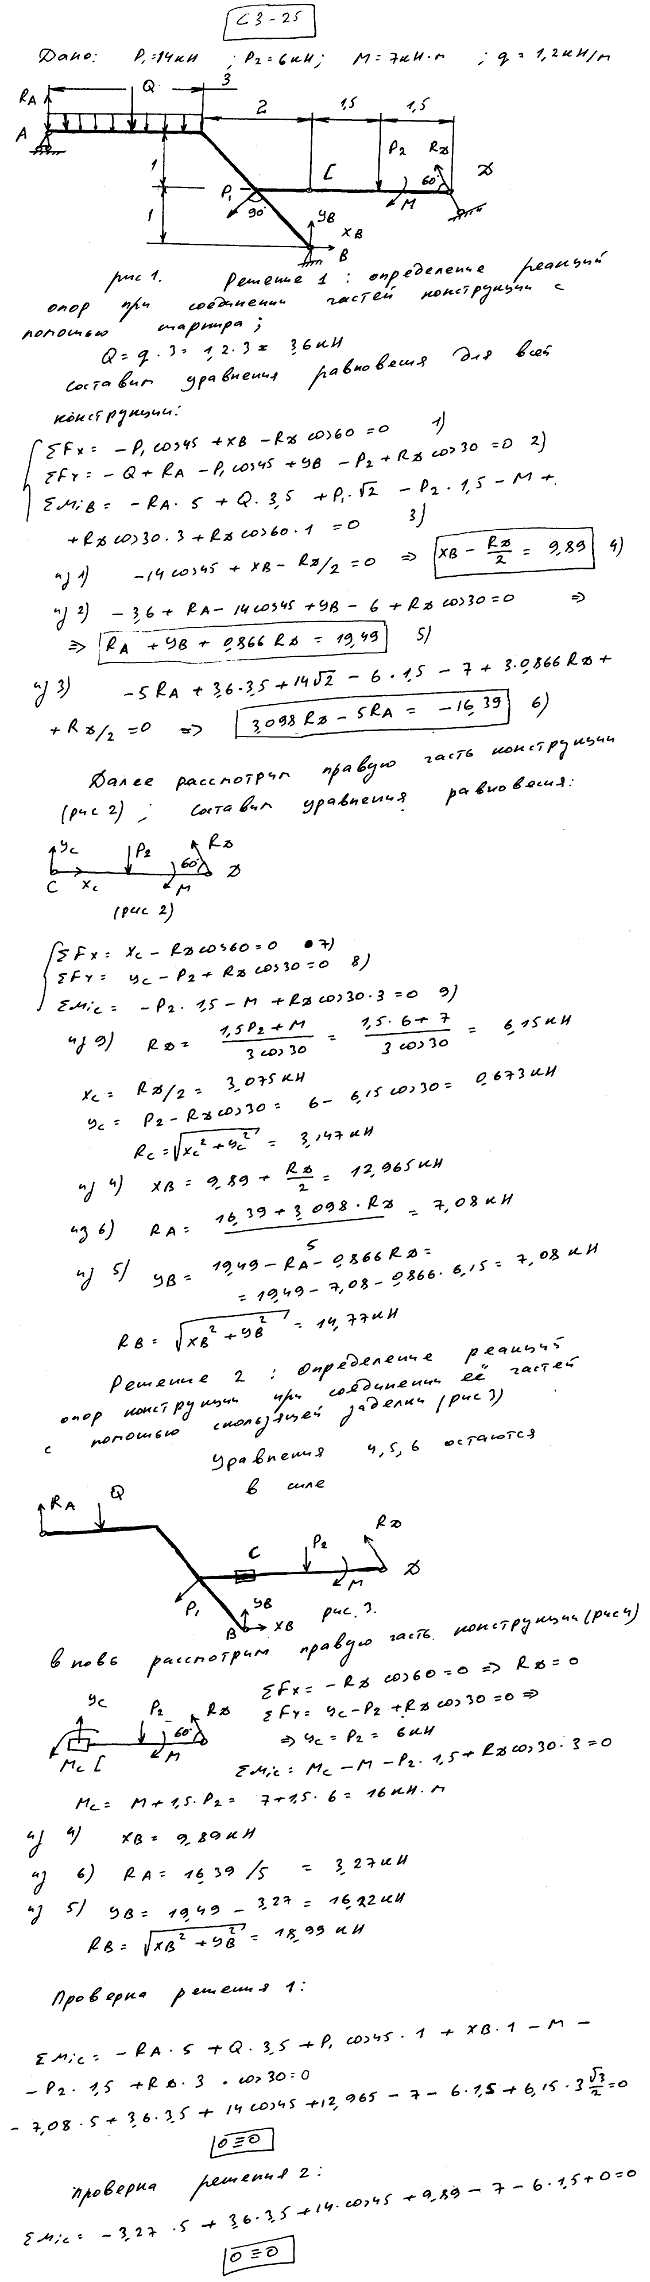 С3-25
Дано: P₁=14кН ; P₂=6кН; M=7кН·м ; q=1,2кН/м
3
RA Q
2 1,5 1,5
A P₂ RД
C 60° Д
1 P₁ M
90°
1 YB
XB
B
рис 1. Решение 1 : определение реакций
опор при соединении частей конструкции с
помошью шарнира;
Q = q·3 = 1,2·3 = 3,6 кН
составим уравнения равновесия для всей
конструкции:
ΣFx = -P₁cos45 + XB - RД cos60 = 0 1)
ΣFY = -Q + RA - P₁cos45 + YB - P₂ + RД cos30 = 0 2)
ΣMiB = -RA·5 + Q·3,5 + P₁·√2 - P₂·1,5 - M +
+ RД cos30·3 + RД cos60·1 = 0 3)
из 1) -14cos45 + XB - RД/2 = 0 ⇒ XB - RД/2 = 9,89 4)
из 2) -3,6 + RA - 14cos45 + YB - 6 + RД cos30 = 0 ⇒
⇒ RA + YB + 0,866 RД = 19,49 5)
из 3) -5RA + 3,6·3,5 + 14√2 - 6·1,5 - 7 + 3·0,866 RД +
+ RД/2 = 0 ⇒ 3,098 RД - 5RA = -16,39 6)
Далее рассмотрим правую часть конструкции
(рис 2) ; составим уравнения равновесия:
YC P₂ RД
60° Д
C XC M
(рис 2)
ΣFx = XC - RД cos60 = 0 7)
ΣFY = YC - P₂ + RД cos30 = 0 8)
ΣMiC = -P₂·1,5 - M + RД cos30·3 = 0 9)
из 9) RД = (1,5P₂ + M)/(3 cos30) = (1,5·6 + 7)/(3 cos30) = 6,15 кН
XC = RД/2 = 3,075 кН
YC = P₂ - RД cos30 = 6 - 6,15 cos30 = 0,673 кН
RC = √(XC² + YC²) = 3,147 кН
из 4) XB = 9,89 + RД/2 = 12,965 кН
из 6) RA = (16,39 + 3,098·RД)/5 = 7,08 кН
из 5) YB = 19,49 - RA - 0,866 RД =
= 19,49 - 7,08 - 0,866·6,15 = 7,08 кН
RB = √(XB² + YB²) = 14,77 кН
Решение 2 : Определение реакций
опор конструкции при соединении её частей
с помошью скользящей заделки (рис 3)
Уравнения 4,5,6 остаются
в силе
RA Q
C P₂ RД
Д
P₁ M
YB
B XB рис. 3.
Вновь рассмотрим правую часть конструкции (рис 4)
ΣFx = -RД cos60 = 0 ⇒ RД = 0
YC P₂ RД ΣFY = YC - P₂ + RД cos30 = 0 ⇒
60° ⇒ YC = P₂ = 6 кН
MC C M ΣMiC = MC - M - P₂·1,5 + RД cos30·3 = 0
MC = M + 1,5·P₂ = 7 + 1,5·6 = 16 кН·м
из 4) XB = 9,89 кН
из 6) RA = 16,39/5 = 3,27 кН
из 5) YB = 19,49 - 3,27 = 16,22 кН
RB = √(XB² + YB²) = 18,99 кН
Проверка решения 1:
ΣMiC = -RA·5 + Q·3,5 + P₁ cos45·1 + XB·1 - M -
- P₂·1,5 + RД·3·cos30 = 0
- 7,08·5 + 3,6·3,5 + 14cos45 + 12,965 - 7 - 6·1,5 + 6,15·3 √3/2 = 0
0≡0
проверка решения 2:
ΣMiC = -3,27·5 + 3,6·3,5 + 14·cos45 + 9,89 - 7 - 6·1,5 + 0 = 0
0≡0